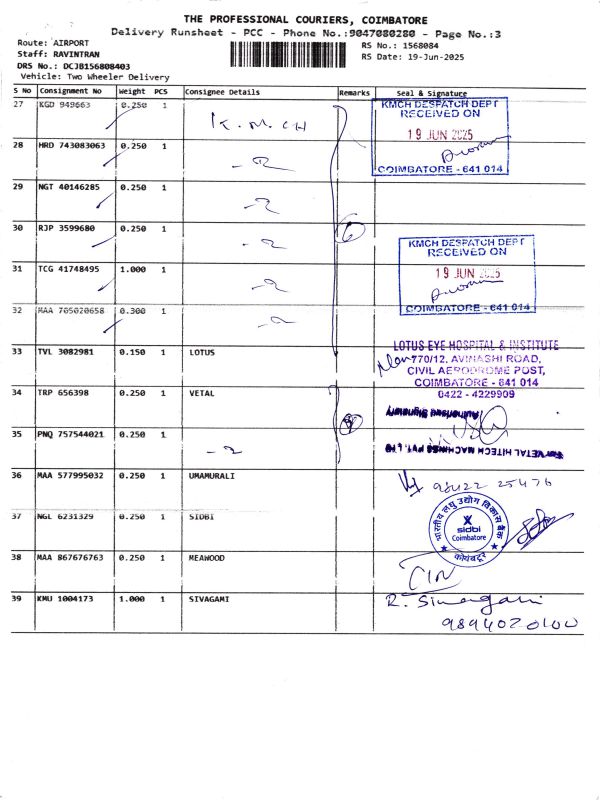 THE PROFESSIONAL COURIERS, COIMBATORE
Delivery Runsheet - PCC - Phone No.:9047080280 - Page No.:3
Route: AIRPORT
RS No.: 1568084
Staff: RAVINTRAN
RS Date: 19-Jun-2025
DRS No.: DCJB156808403
Vehicle: Two Wheeler Delivery
S No Consignment No Weight PCS Consignee Details Remarks Seal & Signature
27 KGD 949663 0.250 1 K.M.CH
KMCH DESPATCH DEPT
RECEIVED ON
19 JUN 2025
COIMBATORE - 641 014
28 HRD 743083063 0.250 1
29 NGT 40146285 0.250 1
30 RJP 3599680 0.250 1 6
KMCH DESPATCH DEPT
RECEIVED ON
19 JUN 2025
COIMBATORE - 641 014
31 TCG 41748495 1.000 1
32 MAA 705020658 0.300 1
33 TVL 3082981 0.150 1 LOTUS
LOTUS EYE HOSPITAL & INSTITUTE
770/12, AVINASHI ROAD,
CIVIL AERODROME POST,
COIMBATORE - 641 014
0422 - 4229909
34 TRP 656398 0.250 1 VETAL
Authorised Signatory
35 PNQ 757544021 0.250 1
For VETAL HITECH MACHINES PVT. LTD
36 MAA 577995032 0.250 1 UMAMURALI
98422 25476
37 NGL 6231329 0.250 1 SIDBI
भारतीय लघु उद्योग विकास बैंक
sidbi
Coimbatore
कोयंबटूर
38 MAA 867676763 0.250 1 MEAWOOD
39 KMU 1004173 1.000 1 SIVAGAMI
R. Sivagami
9894020100